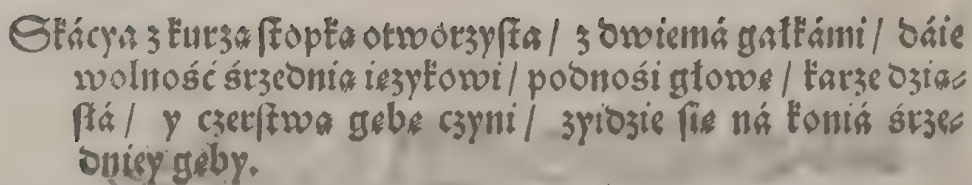 Skácya z kurzą ſtopką otworzyſta / z dwiemá gałkámi / dáie
wolność śrzednią ięzykowi / podnośi głowę / karze dzią⸗
ſłá / y czerſtwą gębę czyni / zyidzie ſię ná koniá śrze⸗
dniey gęby.